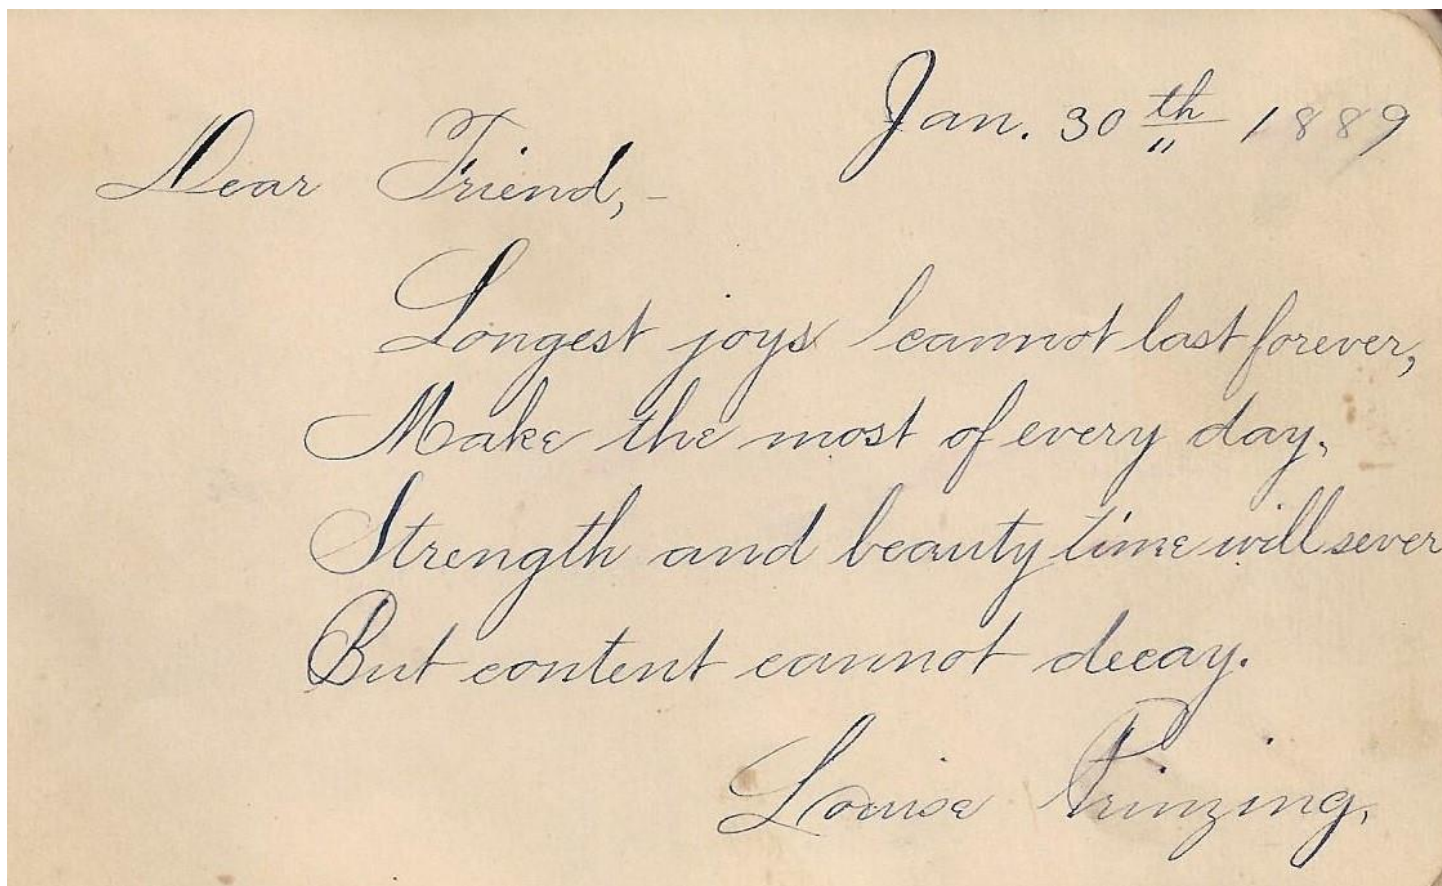 Jan. 30th 1889
Dear Friend,-
Longest joys cannot last forever,
Make the most of every day,
Strength and beauty time will sever
But content cannot decay.
Louise Prinzing.